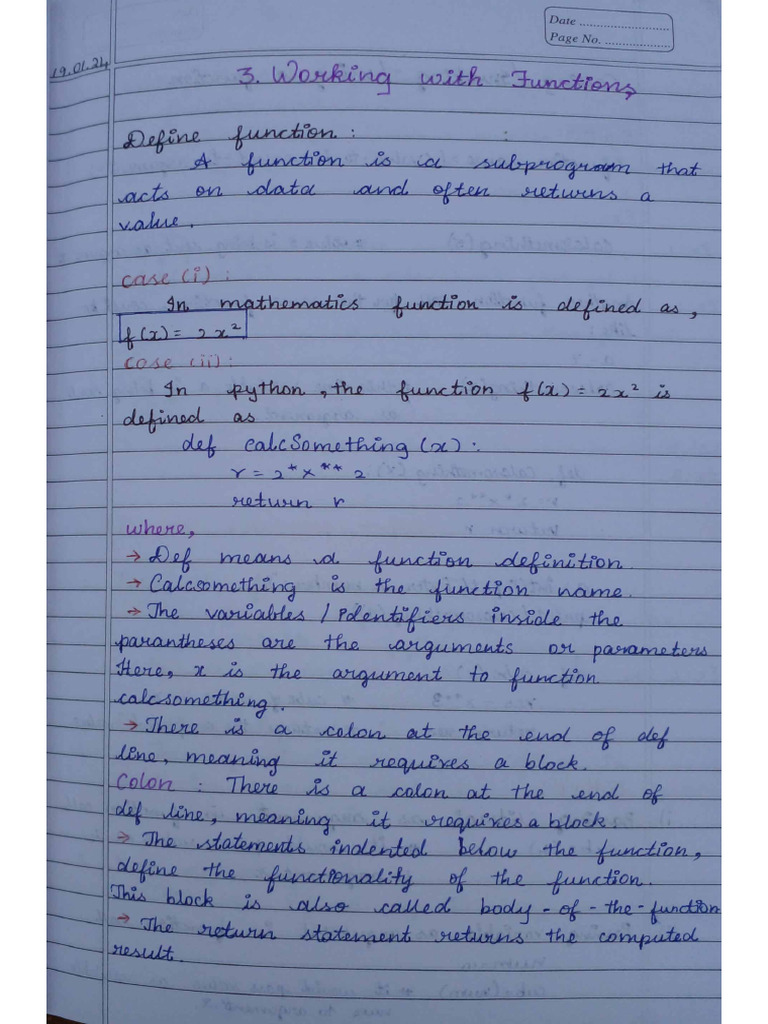 Date ..............................
Page No. .....................
19.01.24
3. Working with Functions
Define function :
A function is a subprogram that
acts on data and often returns a
value.
case (i) :
In mathematics function is defined as,
f(x) = 2x²
case (ii) :
In python, the function f(x) = 2x² is
defined as
def calcSomething (x) :
r = 2*x** 2
return r
where,
→ Def means a function definition.
→ Calcsomething is the function name.
→ The variables / Identifiers inside the
parantheses are the arguments or parameters
Here, x is the argument to function
calcsomething.
→ There is a colon at the end of def
line, meaning it requires a block.
Colon : There is a colon at the end of
def line, meaning it requires a block.
→ The statements indented below the function,
define the functionality of the function.
This block is also called body-of-the-function
→ The return statement returns the computed
result.